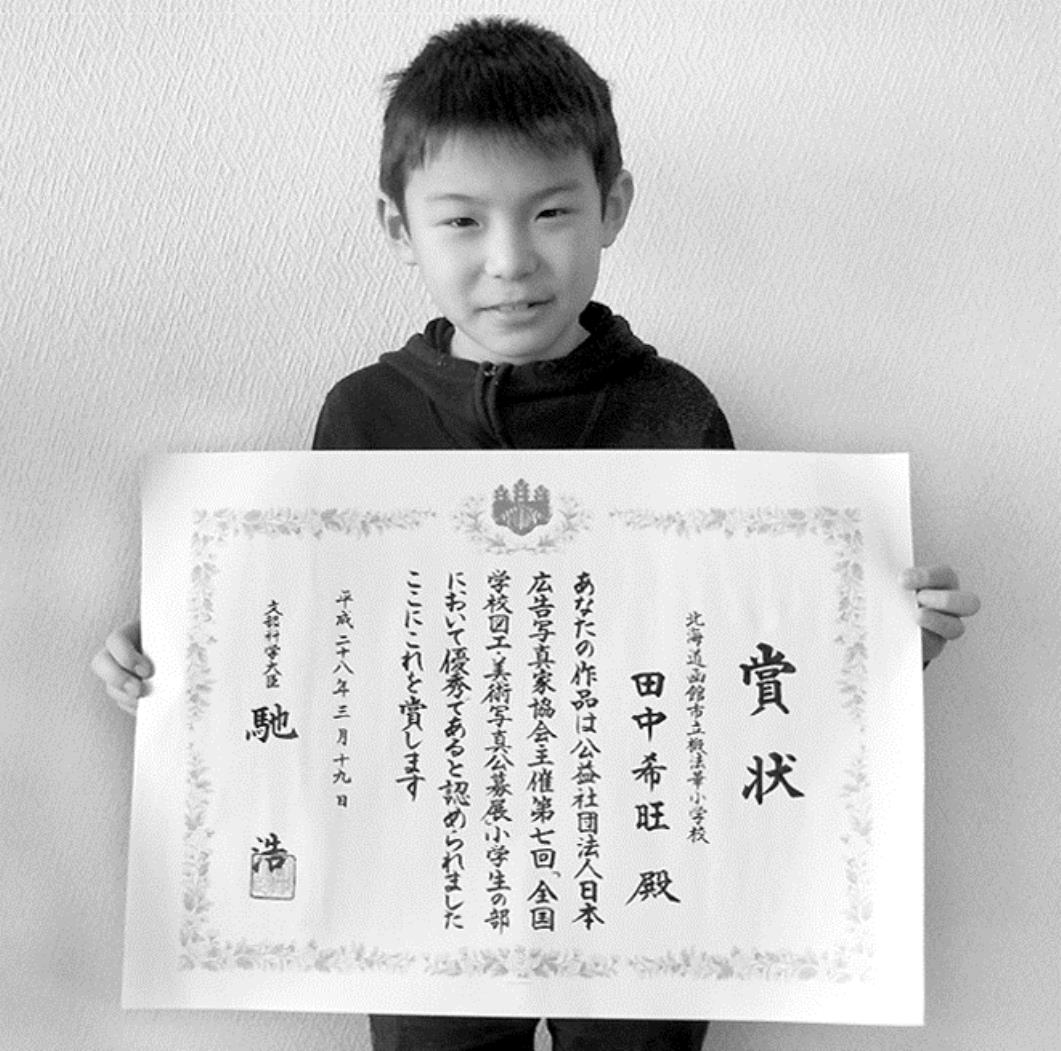 賞状
北海道函館市立椴法華小学校
田中希旺 殿
あなたの作品は公益社団法人日本
広告写真家協会主催第七回「全国
学校図工・美術写真公募展」小学生の部
において優秀であると認められました
ここにこれを賞します
平成二十八年三月十九日
文部科学大臣 馳 浩